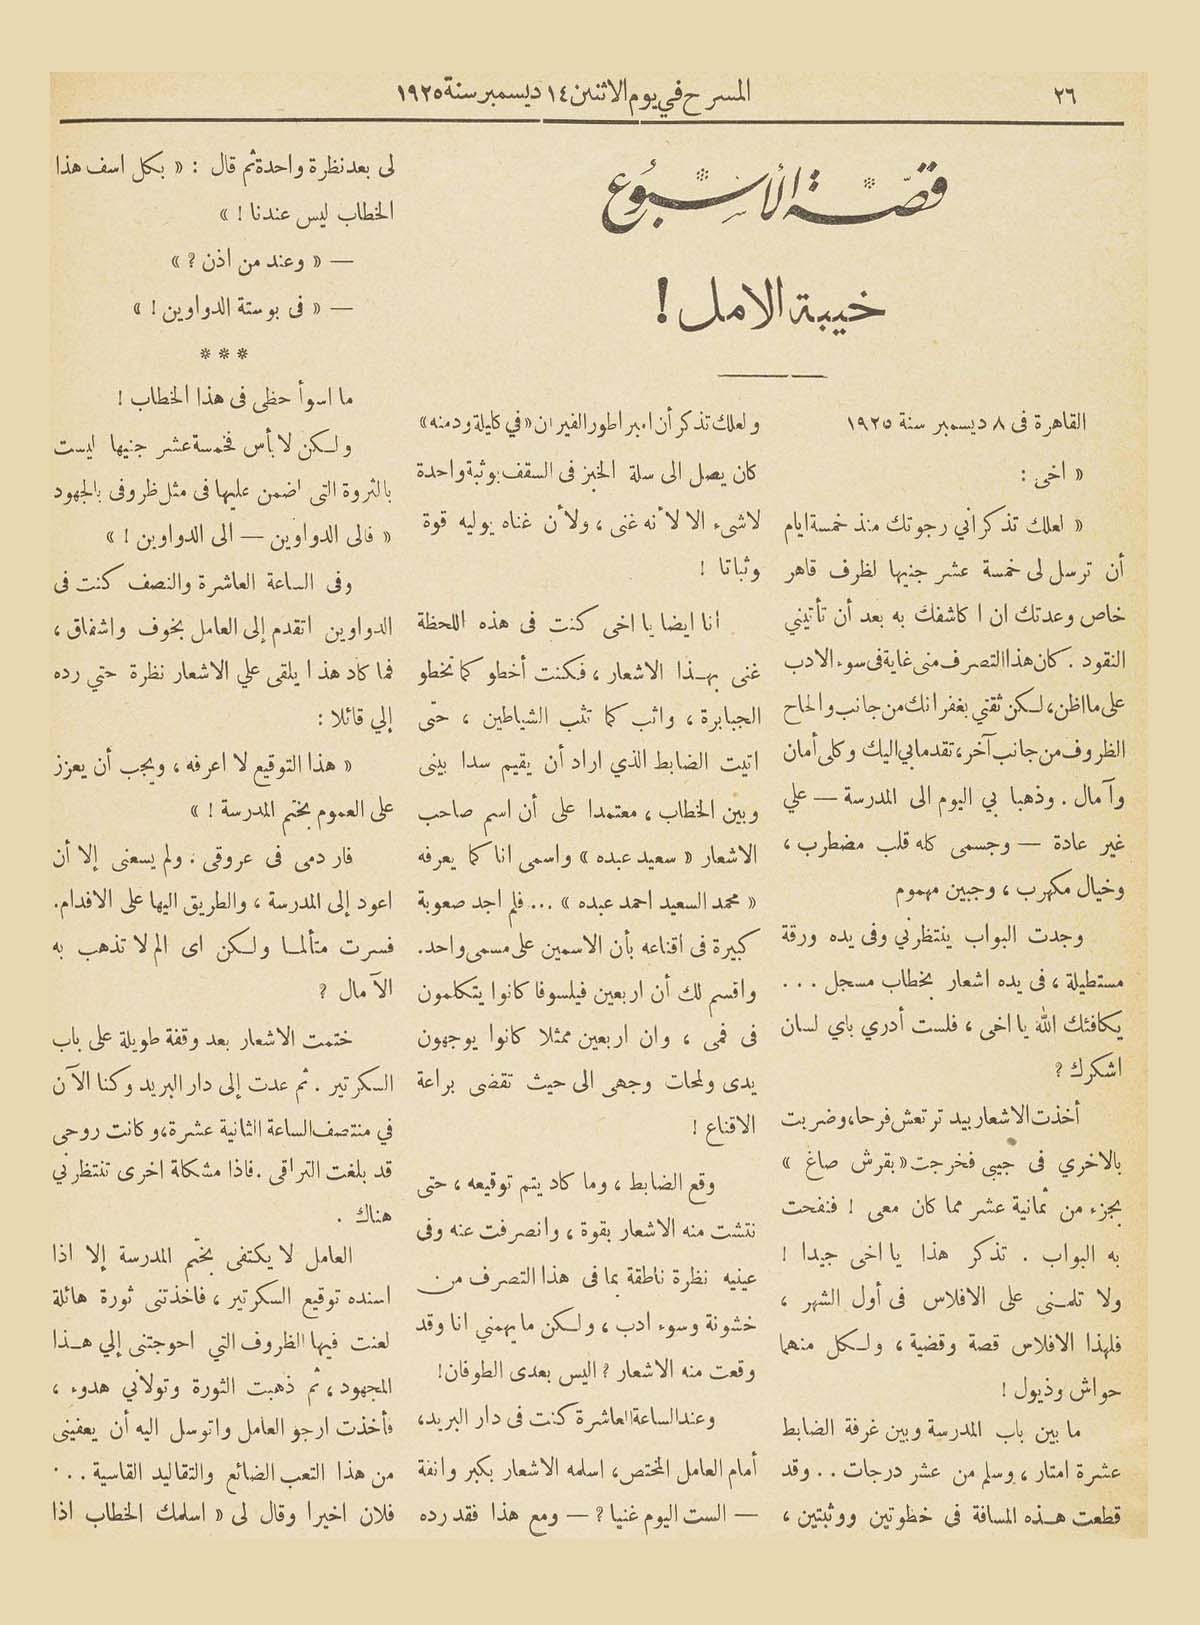 ٢٦
المسرح في يوم الاثنين ١٤ ديسمبر سنة ١٩٢٥
قصة الأسبوع
خيبة الامل !
القاهرة فى ٨ ديسمبر سنة ١٩٢٥
« اخى :
« لعلك تذكر اني رجوتك منذ خمسة ايام
أن ترسل لى خمسة عشر جنيها لظرف قاهر
خاص وعدتك ان اكاشفك به بعد أن تأتيني
النقود . كان هذا التصرف منى غاية فى سوء الادب
على ما اظن ، لكن ثقتي بغفرانك من جانب والحاح
الظروف من جانب آخر ، تقدما بي اليك وكلى أمان
وآمال . وذهبا بي اليوم الى المدرسة — علي
غير عادة — وجسمى كله قلب مضطرب ،
وخيال مكهرب ، وجبين مهموم
وجدت البواب ينتظرني وفى يده ورقة
مستطيلة ، فى يده اشعار بخطاب مسجل . . .
يكافئك الله يا اخى ، فلست أدري باي لسان
اشكرك ؟
أخذت الاشعار بيد ترتعش فرحا ، وضربت
بالاخري فى جيبى فخرجت « بقرش صاغ »
بجزء من ثمانية عشر مما كان معى ! فنفحت
به البواب . تذكر هذا يا اخى جيدا !
ولا تلمنى على الافلاس فى أول الشهر ،
فلهذا الافلاس قصة وقضية ، ولكل منهما
حواش وذيول !
ما بين باب المدرسة وبين غرفة الضابط
عشرة امتار ، وسلم من عشر درجات . . وقد
قطعت هذه المسافة فى خطوتين ووثبتين ،
ولعلك تذكر أن امبراطور الفيران « في كليلة ودمنه »
كان يصل الى سلة الخبز فى السقف بوثبة واحدة
لاشىء الا لأنه غنى ، ولأن غناه يوليه قوة
وثباتا !
انا ايضا يا اخى كنت فى هذه اللحظة
غنى بهذا الاشعار ، فكنت أخطو كما تخطو
الجبابرة ، واثب كما تثب الشياطين ، حتى
اتيت الضابط الذي اراد أن يقيم سدا بينى
وبين الخطاب ، معتمدا على أن اسم صاحب
الاشعار « سعيد عبده » واسمى انا كما يعرفه
« محمد السعيد احمد عبده » ... فلم اجد صعوبة
كبيرة فى اقناعه بأن الاسمين على مسمى واحد.
واقسم لك أن اربعين فيلسوفا كانوا يتكلمون
فى فمى ، وان اربعين ممثلا كانوا يوجهون
يدى ولمحات وجهى الى حيث تقضى براعة
الاقناع !
وقع الضابط ، وما كاد يتم توقيعه ، حتى
نتشت منه الاشعار بقوة ، وانصرفت عنه وفى
عينيه نظرة ناطقة بما فى هذا التصرف من
خشونة وسوء ادب ، ولكن ما يهمني انا وقد
وقعت منه الاشعار ؟ اليس بعدى الطوفان !
وعند الساعة العاشرة كنت فى دار البريد ،
أمام العامل المختص ، اسلمه الاشعار بكبر وانفة
— الست اليوم غنيا ؟ — ومع هذا فقد رده
لى بعد نظرة واحدة ثم قال : « بكل اسف هذا
الخطاب ليس عندنا ! »
— « وعند من اذن ؟ »
— « فى بوستة الدواوين ! »
* * *
ما اسوأ حظى فى هذا الخطاب !
ولكن لا بأس فخمسة عشر جنيها ليست
بالثروة التى اضمن عليها فى مثل ظروفى بالجهود
« فالى الدواوين — الى الدواوين ! »
وفى الساعة العاشرة والنصف كنت فى
الدواوين اتقدم إلى العامل بخوف واشفاق ،
فما كاد هذا يلقى علي الاشعار نظرة حتي رده
إلي قائلا :
« هذا التوقيع لا اعرفه ، ويجب أن يعزز
على العموم بختم المدرسة ! »
فار دمى فى عروقى . ولم يسعنى إلا أن
اعود إلى المدرسة ، والطريق اليها على الاقدام.
فسرت متألما ولكن اى الم لا تذهب به
الآمال ؟
ختمت الاشعار بعد وقفة طويلة على باب
السكرتير . ثم عدت إلى دار البريد وكنا الآن
في منتصف الساعة الثانية عشرة ، وكانت روحى
قد بلغت التراقى . فاذا مشكلة اخرى تنتظرني
هناك .
العامل لا يكتفى بختم المدرسة إلا اذا
اسنده توقيع السكرتير ، فاخذتنى ثورة هائلة
لعنت فيها الظروف التي احوجتنى إلي هذا
المجهود ، ثم ذهبت الثورة وتولاني هدوء ،
فأخذت ارجو العامل واتوسل اليه أن يعفينى
من هذا التعب الضائع والتقاليد القاسية . . .
فلان اخيرا وقال لى « اسلمك الخطاب اذا